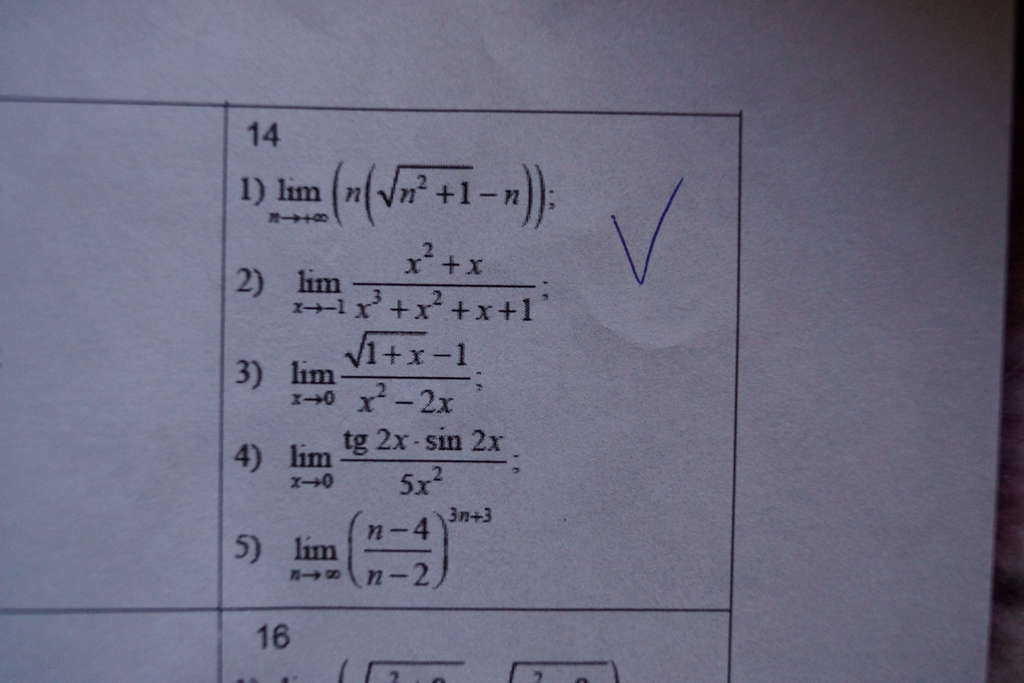 14
1) lim n→+∞ (n(√(n² + 1) − n));
2) lim x→−1 (x² + x)/(x³ + x² + x + 1);
3) lim x→0 (√(1 + x) − 1)/(x² − 2x);
4) lim x→0 (tg 2x · sin 2x)/(5x²);
5) lim n→∞ ((n − 4)/(n − 2))^(3n+3)
16